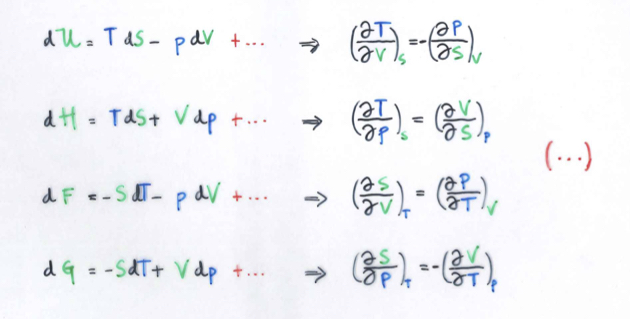 dU = TdS - pdV + ... ⇒ (∂T/∂V)_S = -(∂P/∂S)_V
dH = TdS + Vdp + ... ⇒ (∂T/∂P)_S = (∂V/∂S)_P
(...)
dF = -SdT - pdV + ... ⇒ (∂S/∂V)_T = (∂P/∂T)_V
dG = -SdT + Vdp + ... ⇒ (∂S/∂P)_T = -(∂V/∂T)_P